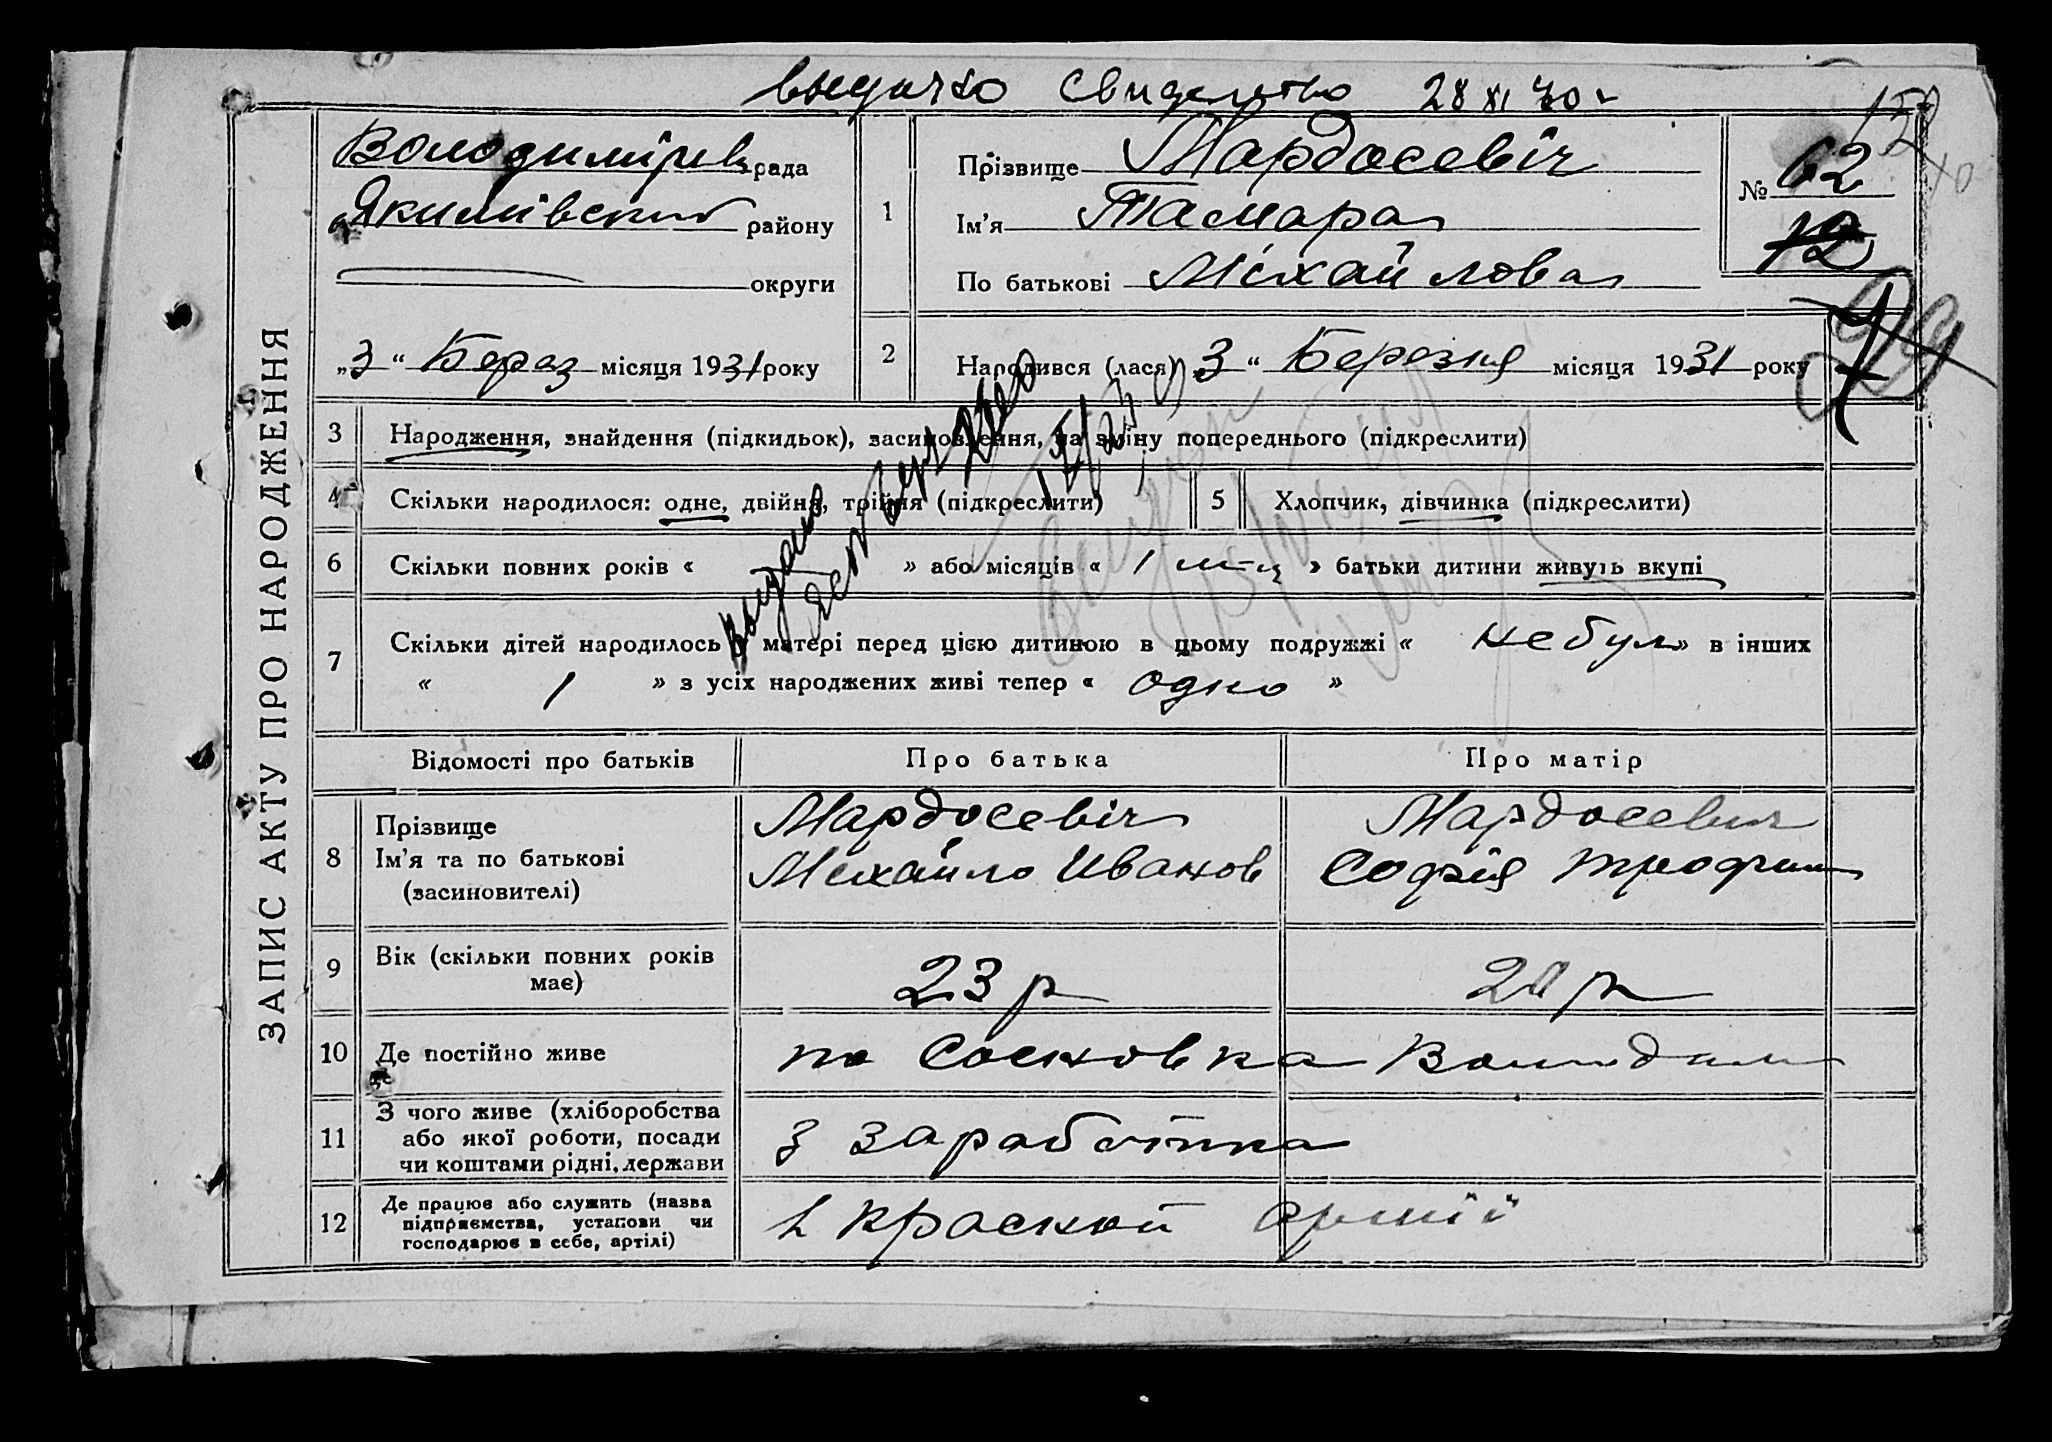 выдано свидетельство 28 XI 40 г
Володимірів рада
Якимівский району
округи
„3“ Берез місяця 1931 року
ЗАПИС АКТУ ПРО НАРОДЖЕННЯ
1
Прізвище Мардосевіч
Ім'я Тамара
По батькові Міхайлова
№ 62
12
2 Народився (лася) „3“ Березня місяця 1931 року
3 Народження, знайдення (підкидьок), засиновлення, на зміну попереднього (підкреслити)
4 Скільки народилося: одне, двійня, трійня (підкреслити) 5 Хлопчик, дівчинка (підкреслити)
6 Скільки повних років « » або місяців « 1 м-ц » батьки дитини живуть вкупі
7 Скільки дітей народилось у матері перед цією дитиною в цьому подружжі « небул » в інших
« 1 » з усіх народжених живі тепер « одно »
выдано
Відомості про батьків Про батька Про матір
8 Прізвище Мардосевіч Мардосевич
Ім'я та по батькові Михайло Иванов Софія Трофим
(засиновителі)
9 Вік (скільки повних років має) 23 р 20 р
10 Де постійно живе по Сосновка Володим
11 З чого живе (хліборобства
або якої роботи, посади
чи коштами рідні, держави
З заработка
12 Де працює або служить (назва
підприємства, установи чи
господарює в себе, артілі)
в Красной армії